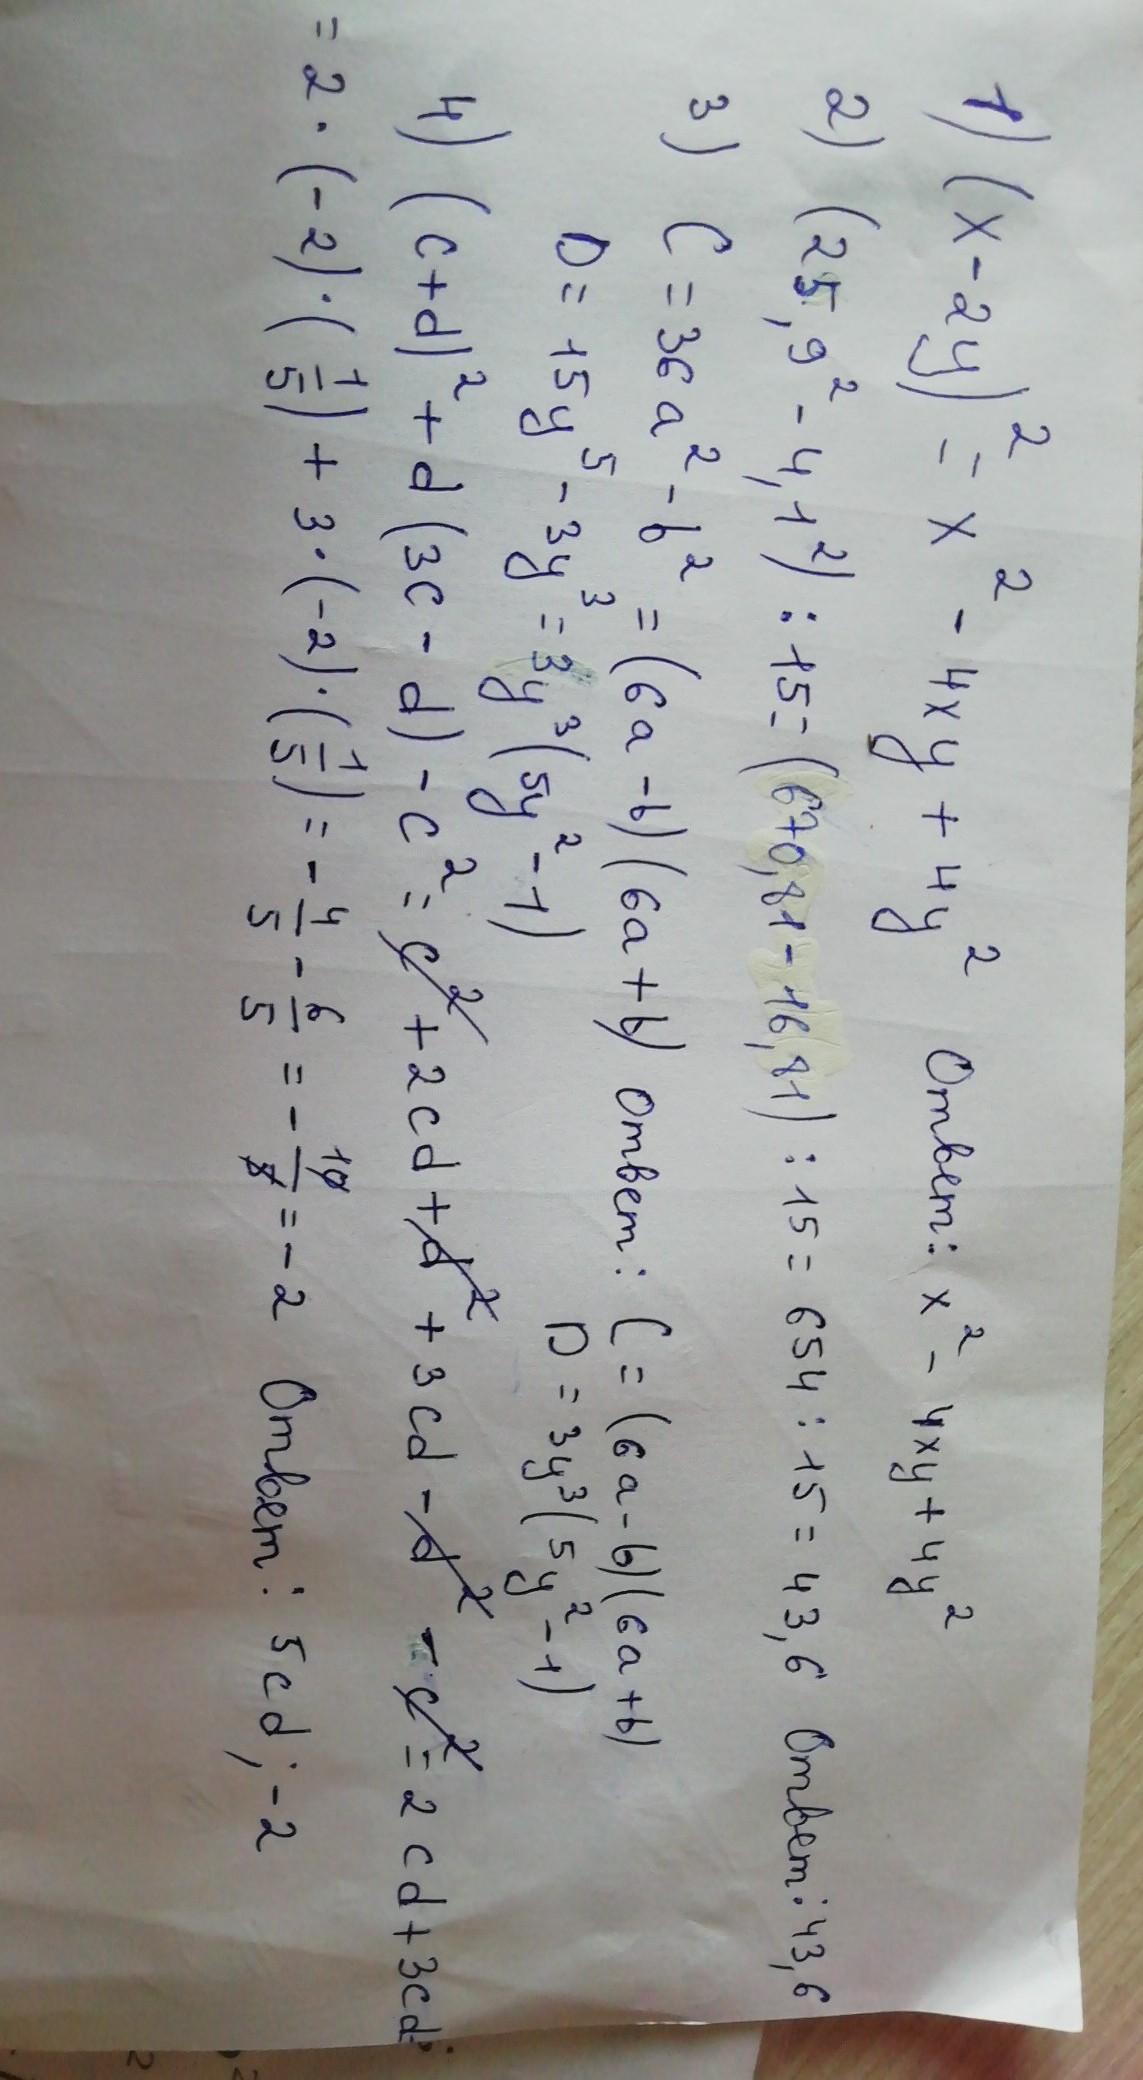 1) (x-2y)² = x² - 4xy + 4y² Ответ: x² - 4xy + 4y²
2) (25,9² - 4,1²) : 15 = (670,81 - 16,81) : 15 = 654 : 15 = 43,6 Ответ: 43,6
3) C = 36a² - b² = (6a - b)(6a + b) Ответ: C = (6a - b)(6a + b)
D = 15y⁵ - 3y³ = 3y³(5y² - 1) D = 3y³(5y² - 1)
4) (c+d)² + d(3c - d) - c² = c² + 2cd + d² + 3cd - d² - c² = 2cd + 3cd =
= 2 · (-2) · (1/5) + 3 · (-2) · (1/5) = - 4/5 - 6/5 = - 10/5 = -2 Ответ: 5cd; -2